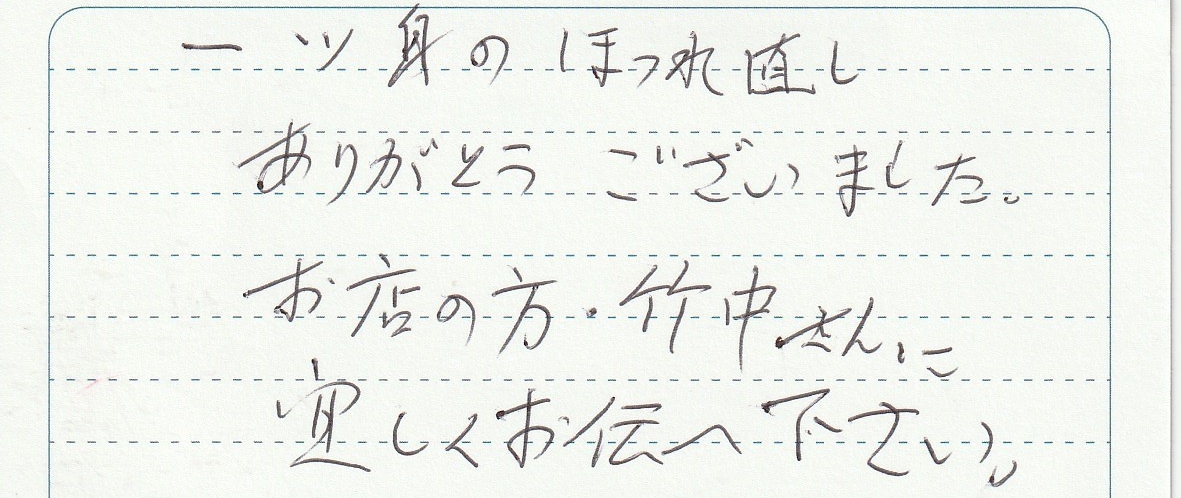 一ツ身のほつれ直し
ありがとうございました。
お店の方・竹中さんに
宜しくお伝へ下さい。